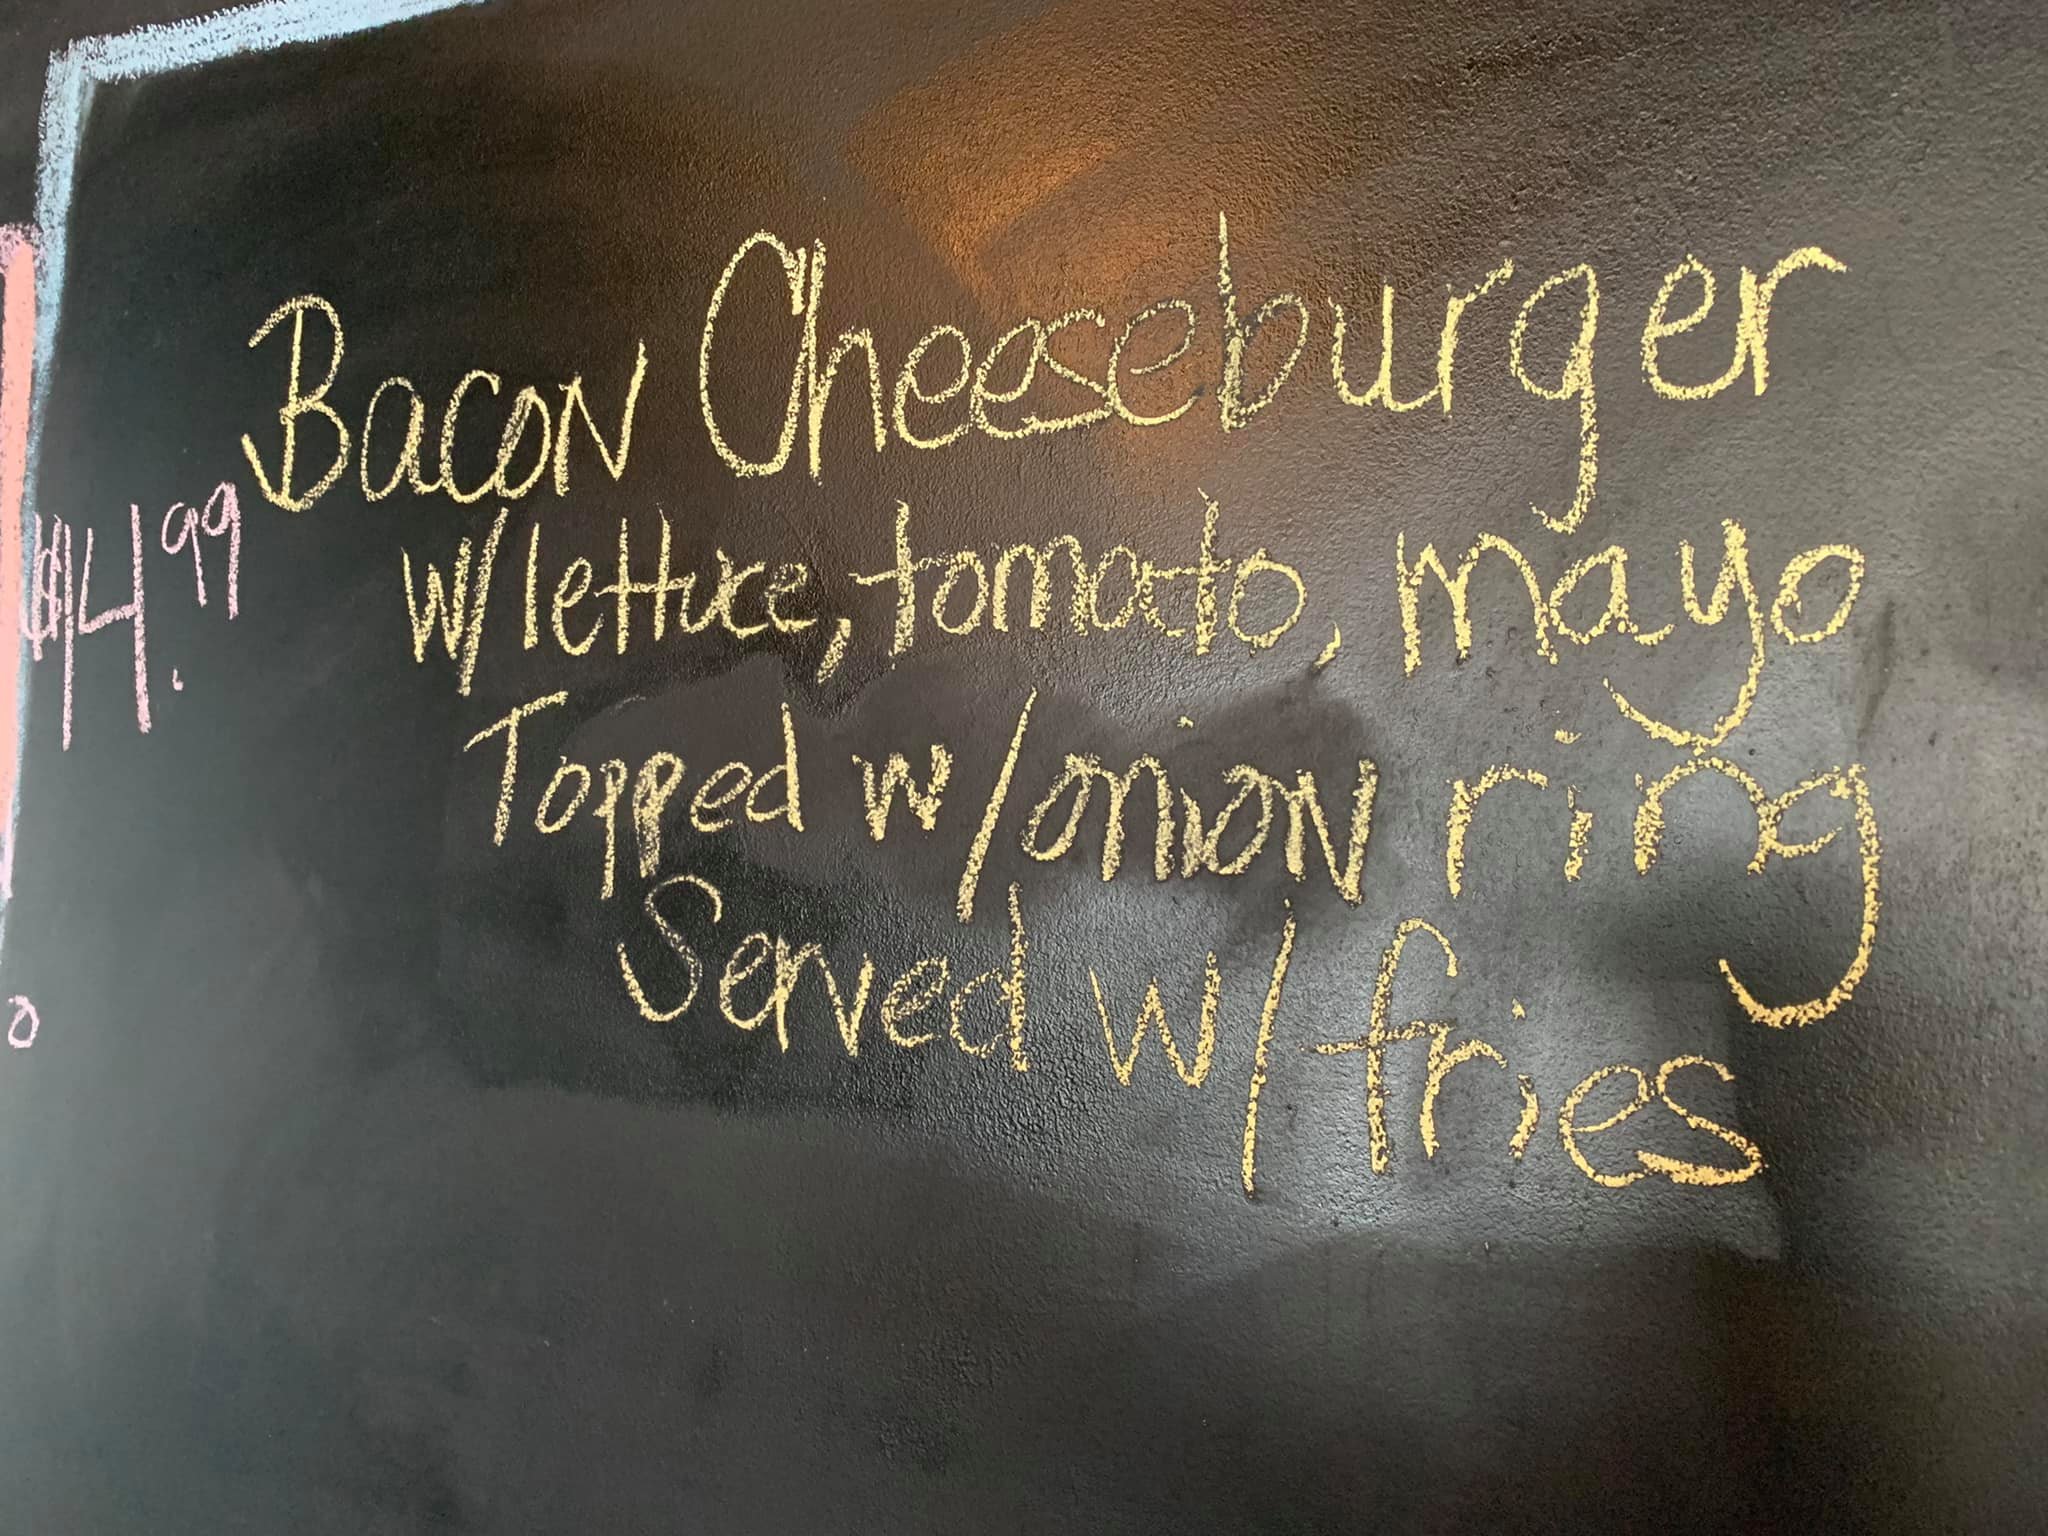 Bacon Cheeseburger
$14.99
w/lettuce, tomato, mayo
Topped w/onion ring
Served w/fries